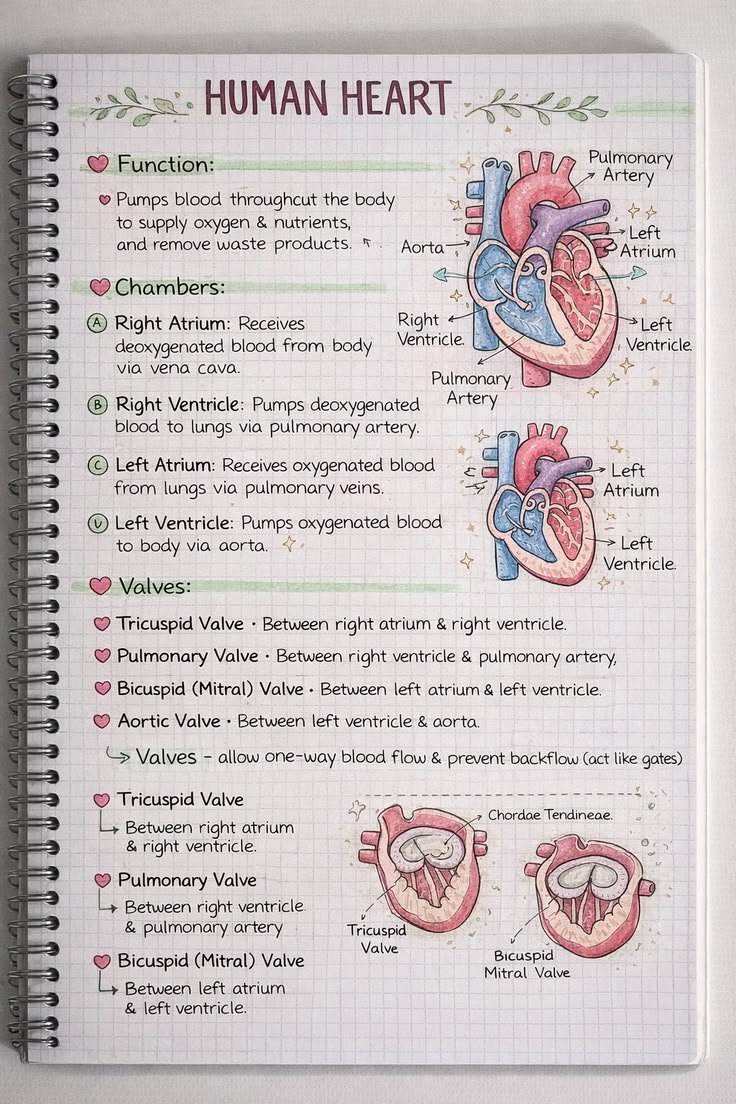 HUMAN HEART
Function:
Pumps blood throughcut the body
to supply oxygen & nutrients,
and remove waste products.
Pulmonary
Artery
Aorta
Left
Atrium
Right
Ventricle.
Left
Ventricle.
Pulmonary
Artery
Chambers:
A Right Atrium: Receives
deoxygenated blood from body
via vena cava.
B Right Ventricle: Pumps deoxygenated
blood to lungs via pulmonary artery.
C Left Atrium: Receives oxygenated blood
from lungs via pulmonary veins.
D Left Ventricle: Pumps oxygenated blood
to body via aorta.
Left
Atrium
Left
Ventricle.
Valves:
Tricuspid Valve • Between right atrium & right ventricle.
Pulmonary Valve • Between right ventricle & pulmonary artery,
Bicuspid (Mitral) Valve • Between left atrium & left ventricle.
Aortic Valve • Between left ventricle & aorta.
Valves – allow one-way blood flow & prevent backflow (act like gates)
Tricuspid Valve
Between right atrium
& right ventricle.
Pulmonary Valve
Between right ventricle
& pulmonary artery
Bicuspid (Mitral) Valve
Between left atrium
& left ventricle.
Chordae Tendineae.
Tricuspid
Valve
Bicuspid
Mitral Valve